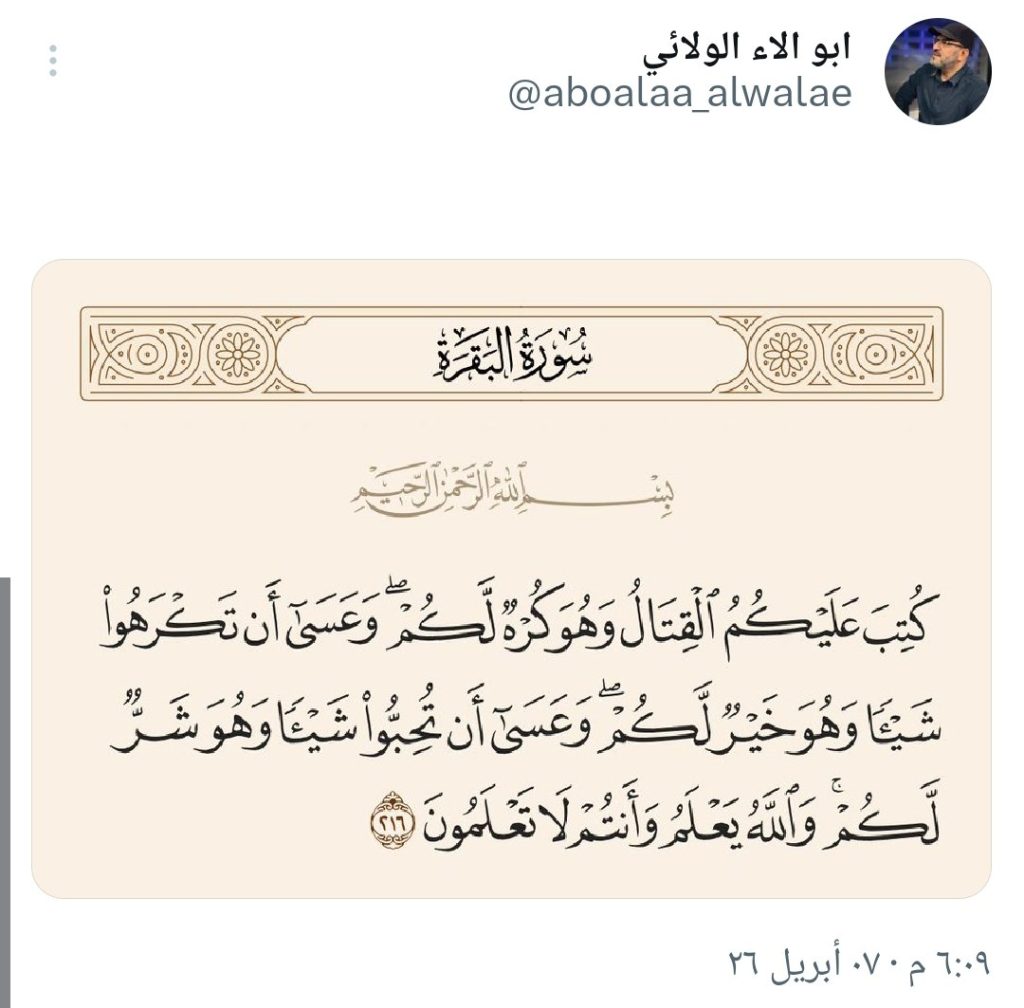 ابو الاء الولائي
@aboalaa_alwalae
سُورَةُ البَقَرَةِ
بِسْمِ ٱللَّهِ ٱلرَّحْمَٰنِ ٱلرَّحِيمِ
كُتِبَ عَلَيْكُمُ ٱلْقِتَالُ وَهُوَ كُرْهٌ لَّكُمْ ۖ وَعَسَىٰٓ أَن تَكْرَهُوا۟
شَيْـًٔا وَهُوَ خَيْرٌ لَّكُمْ ۖ وَعَسَىٰٓ أَن تُحِبُّوا۟ شَيْـًٔا وَهُوَ شَرٌّ
لَّكُمْ ۚ وَٱللَّهُ يَعْلَمُ وَأَنتُمْ لَا تَعْلَمُونَ ٢١٦
٦:٠٩ م · ٠٧ أبريل ٢٦